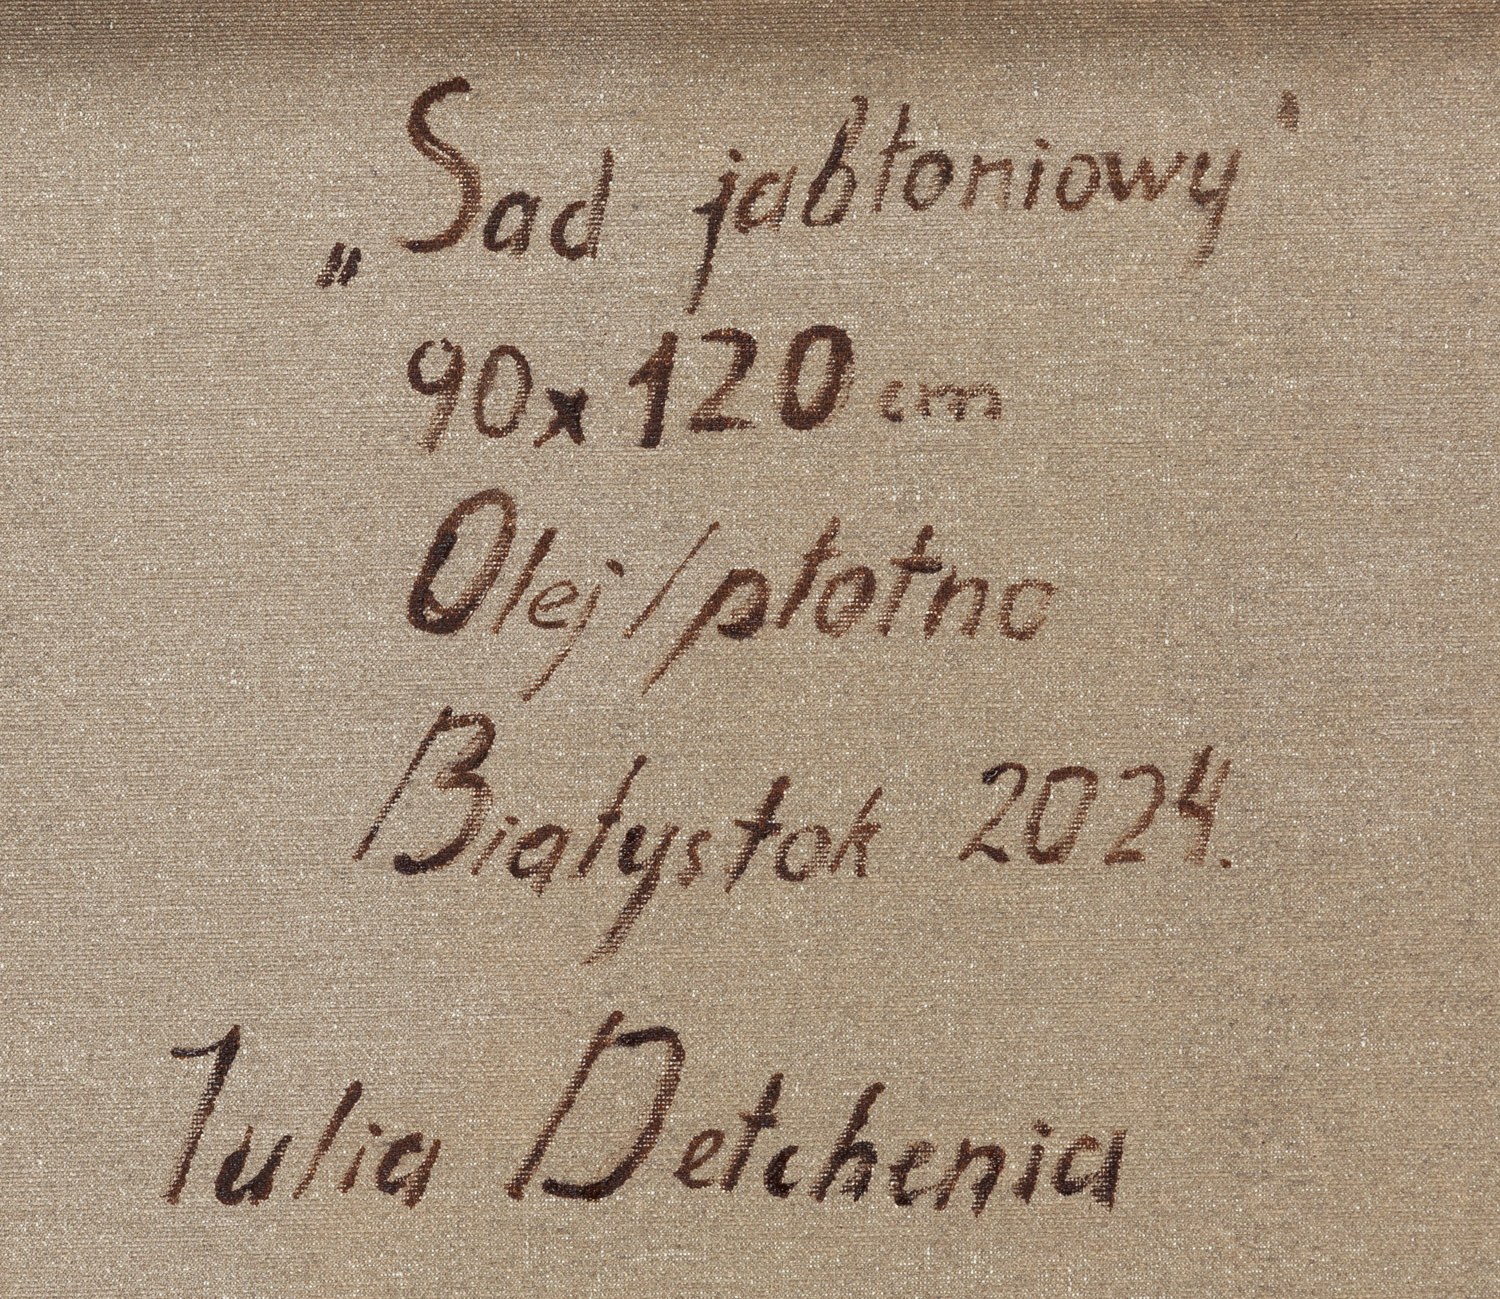 „Sad jabłoniowy'
90x120 cm
Olej/płótno
Białystok 2024.
Iulia Detchenia